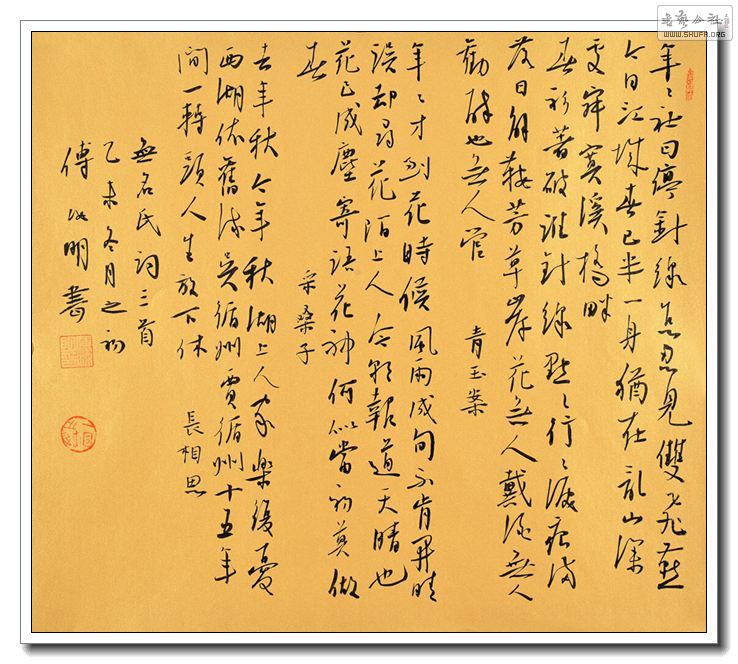 書藝公社
WWW.SHUFA.ORG
年〻社日停針線怎忍見雙飛燕
今日江城春已半一身猶在亂山深
處寂寞溪橋畔
春衫著破誰針線點〻行〻淚痕滿
落日解鞍芳草岸花無人戴酒無人
勸醉也無人管 青玉案
年〻才到花時候風雨成旬不肯開晴
誤却尋花陌上人今朝報道天晴也
花已成塵寄語花神何似當初莫做
春 采桑子
去年秋今年秋湖上人家樂復憂
西湖依舊流吳循州賈循州十五年
間一轉頭人生放下休 長相思
無名氏詞三首
乙未冬月之初
傅明書